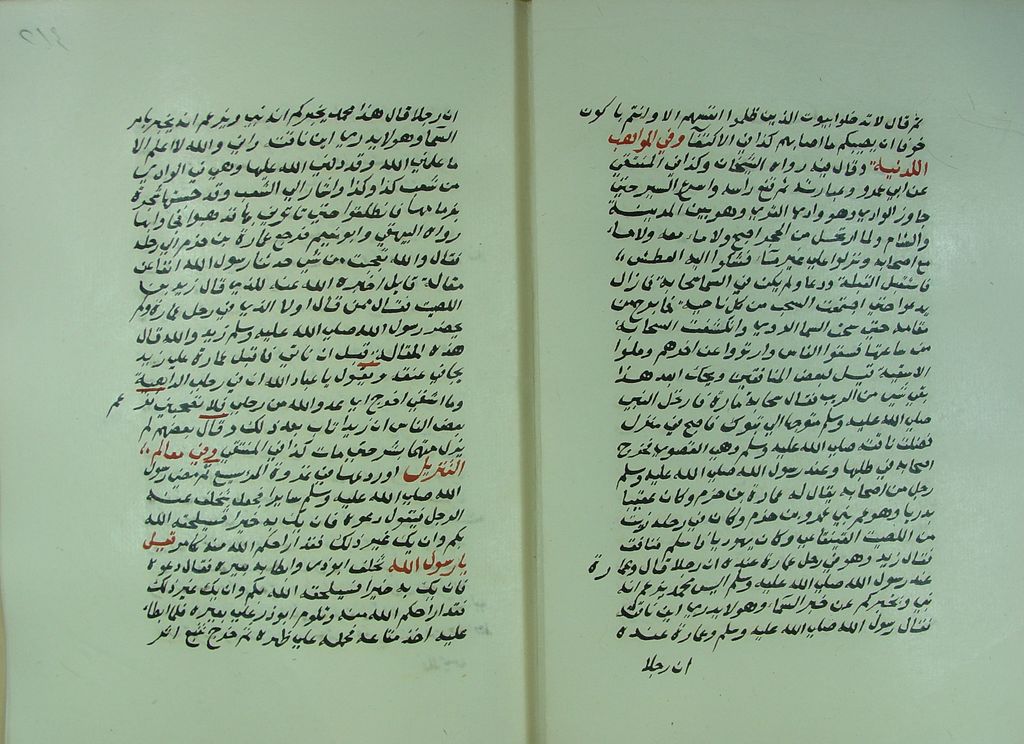 ثم قال لا تدخلوا بيوت الذين ظلموا انفسهم الا وانتم باكون
خوفا ان يصيبكم ما اصابهم كذا في الاكتفا وفي المواهب
اللدنية وقال فيه رواه الشيخان وكذا في المنتقى
عن ابي عمرو وعبارته ثم قنع راسه واسرع السير حتى
جاوز الوادي وهو وادي القرى وهو بين المدينة
والشام ولما ارتحل من الحجر اصبح ولا ما معه ولا ما
مع اصحابه ونزلوا على غير ما فشكوا اليه العطش
فاستقبل القبلة ودعا ولم يكن في السما سحابة فما زال
يدعوا حتى اجتمعت السحب من كل ناحية فما برح من
مقامه حتى سحت السما الروى وانكشفت السحابة
من ساعتها فسقوا الناس وارتووا عن اخرهم وملوا
الاسقية قيل لبعض المنافقين ويحك ابعد هذا
بقي شي من الريب فقال سحابة مارة فارتحل النبي
صلى الله عليه وسلم متوجها الى تبوك فاصبح في منزل
فضلت ناقة صلى الله عليه وسلم وهي القصوى فخرج
اصحابه في طلبها وعند رسول الله صلى الله عليه وسلم
رجل من اصحابه يقال له عمارة بن حزم وكان عقبيا
بدريا وهو عم بني عمرو بن حزم وكان في رحله زيد
من اللصيت القينقاعي وكان يهوديا فاسلم فنافق
فقال زيد وهو في رحل عمارة عنده ان رجلا قال وعمارة
عند رسول الله صلى الله عليه وسلم اليس محمد يزعم انه
نبي ويخبركم عن خبر السما وهو لا يدري اين ناقته
فقال رسول الله صلى الله عليه وسلم وعمارة عنده
ان رجلا
ان رجلا قال هذا محمد يخبركم انه نبي ويزعم انه يخبر بامر
السما وهو لا يدري اين ناقته واني والله لا اعلم الا
ما علمني الله وقد دلني الله عليها وهي في الوادي
من شعب كذا وكذا واشار الى الشعب وقد حبستها شجرة
بزمامها فانطلقوا حتى تاتوني بها فذهبوا فاتوا بها
رواه البيهقي وابو نعيم فرجع عمارة بن حزم الى رحله
فقال والله لعجبت من شي حدثنا رسول الله انفا عن
مقالة قايل اخبره الله عنه للذي قال زيد بن
اللصيت فقال من كان في رحل عمارة ولم
يحضر رسول الله صلى الله عليه وسلم زيد والله قال
هذه المقالة قبل ان تاتي فاقبل عمارة على زيد
يجا في عنقه ويقول يا عباد الله ان في رحلي الداهية
وما اشعر اخرج اي عدو الله من رحلي فلا تصحبني فزعم
بعض الناس ان زيدا تاب بعد ذلك وقال بعضهم لم
يزل متهما بشر حتى مات كذا في المنتقى وفي معالم
التنزيل اورد عما في غزوة المريسيع ثم مضى رسول
الله صلى الله عليه وسلم سايرا فجعل يتخلف عنه
الرجل فيقول دعوه فان يك به خيرا فسيلحقه الله
بكم وان يك غير ذلك فقد اراحكم الله منه قيل
يا رسول الله تخلف ابو ذر وابطا به بعيره فقال دعوه
فان يك به خيرا فسيلحقه الله بكم وان يك غير ذلك
فقد اراحكم الله منه وتلوم ابو ذر على بعيره فلما ابطا
عليه اخذ متاعه فحمله على ظهره ثم خرج يتبع اثر